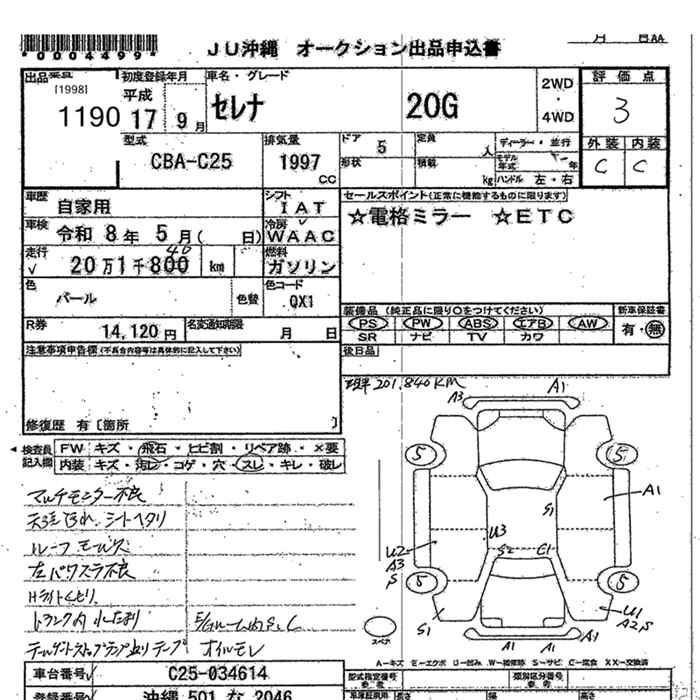 *0004499*
JU沖縄 オークション出品申込書
月 日AA
出品 初度登録年月 車名・グレード 2WD ・ 4WD 評価点
[1998]
1190 平成 17 9月 セレナ 20G 3
外装 内装
C C
型式 排気量 ドア 5 定員 人 ディーラー・並行
CBA-C25 1997 cc 形状 積載 kg モデル年式 年 ハンドル 左・右
車歴 自家用 シフト IAT セールスポイント(正常に機能するものに限ります)
☆電格ミラー ☆ETC
車検 令和 8年 5月( 日) 冷房 WAAC
走行 √ 20万1千800 km 燃料 ガソリン
40
色 パール 色替 色コード QX1
装備品 (純正品に限り○をつけてください) 新車保証書
PS PW ABS エアB AW 有・無
SR ナビ TV カワ
R券 14,120円 名変通知期限 月 日
後日品
注意事項申告欄(不具合内容等は具体的に記入して下さい)
201,840KM
修復歴 有〔箇所 〕
検査員記入欄
FW キズ・飛石・ヒビ割・リペア跡・×要
内装 キズ・汚レ・コゲ・穴・スレ・キレ・破レ
マルチモニター不良
シートヘタリ
ルーフモール欠
左パワスラ不良
Hライトくもり
トランク内
オイルモレ
A3 A1
5 5
A1
S1
U3
U2
A3
S
S2 E1
5 5
S1
U1
A2 S
スペア
A1 A1 A1
A—キズ E—エクボ U—凹み W—補修跡 S—サビ C—腐食 XX—交換済
車台番号 C25-034614
型式指定番号 類別区分番号
登録番号 沖縄 501 な 2046
長さ 幅 高さ